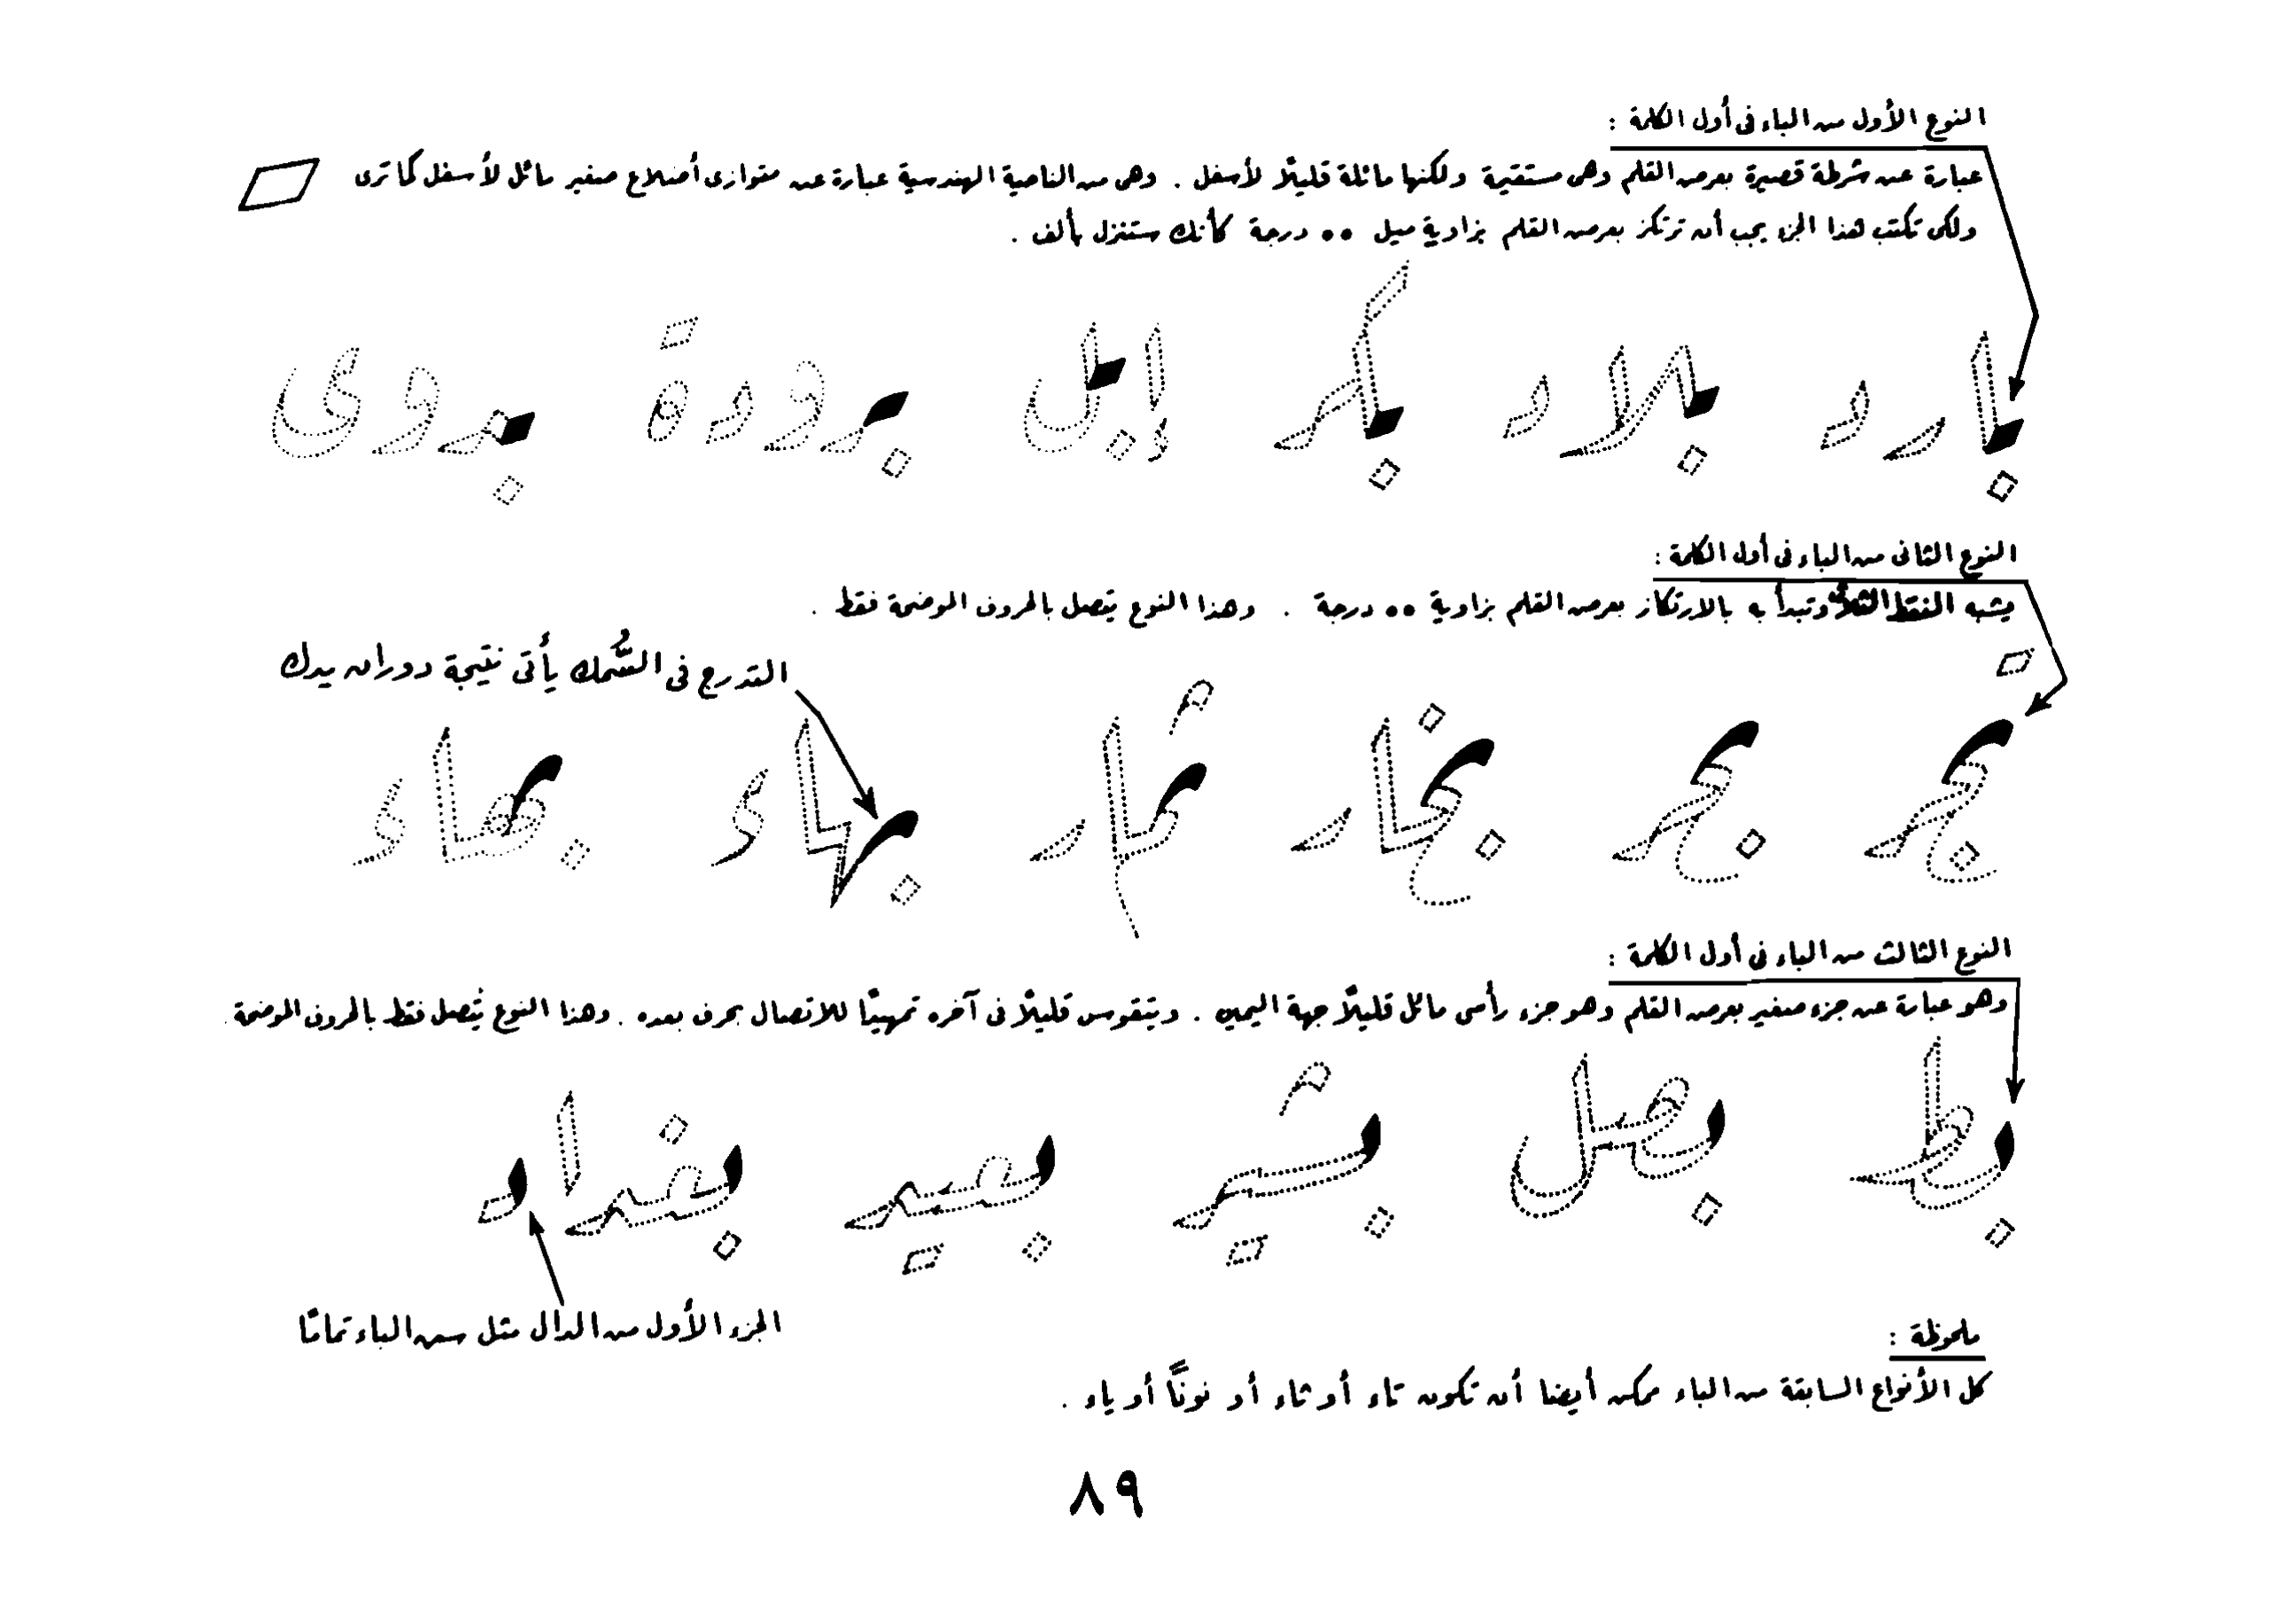 النوع الأول من الباء فى أول الكلمة :
عبارة عن شرطة قصيرة بعرض القلم وهى مستقيمة ولكنها مائلة قليلًا لأسفل . وهى من الناحية الهندسية عبارة عن متوازى أضلاع صغير مائل لأسفل كما ترى
ولكى تكتب هذا الجزء يجب أن ترتكز بعرض القلم بزاوية ميل ٥٥ درجة كأنك ستنزل بألف .
بارد بلاد بكر إبل برودة بدوى
النوع الثانى من الباء فى أول الكلمة :
يشبه النقط الثلاثى وتبدأ به بالارتكاز بعرض القلم بزاوية ٥٥ درجة . وهذا النوع يتصل بالحروف الموضحة فقط .
التدرج فى السُّمك يأتى نتيجة دوران يدك
تجر بحر بخار ثمار بهاء بهاء
النوع الثالث من الباء فى أول الكلمة :
وهو عبارة عن جزء صغير بعرض القلم وهو جزء رأسى مائل قليلًا جهة اليمين . ويتقوس قليلًا فى آخره تمهيدًا للاتصال بحرف بعده . وهذا النوع يُتصل فقط بالحروف الموضحة .
بط بصل بشير بعير بغداد
الجزء الأول من الدال مثل سن الباء تمامًا
ملحوظة :
كل الأنواع السابقة من الباء ممكن أيضا أن تكون تاء أو ثاء أو نونًا أو ياء .
٨٩